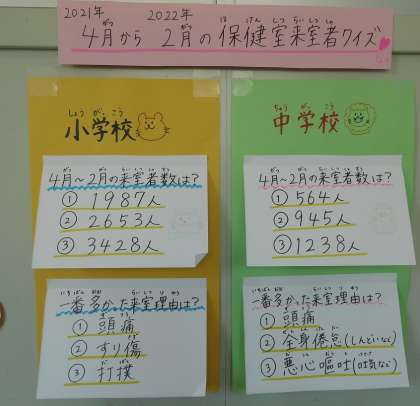 2021年 2022年
4月から 2月の保健室来室者クイズ
小学校
4月～2月の来室者数は？
① 1987人
② 2653人
③ 3428人
一番多かった来室理由は？
① 頭痛
② すり傷
③ 打撲
中学校
4月～2月の来室者数は？
① 564人
② 945人
③ 1238人
一番多かった来室理由は？
① 頭痛
② 全身倦怠(しんどいなど)
③ 悪心嘔吐(吐気など)